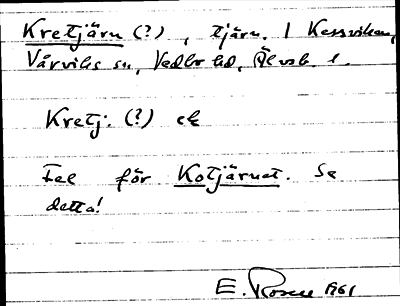 Kretjärn (?), tjärn. I Kassviken,
Vårviks sn, Vedbo hd, Älvsb. l.
Kretj. (?) ek
Fel för Kotjärnet. Se
detta!
E. Rosell 1961